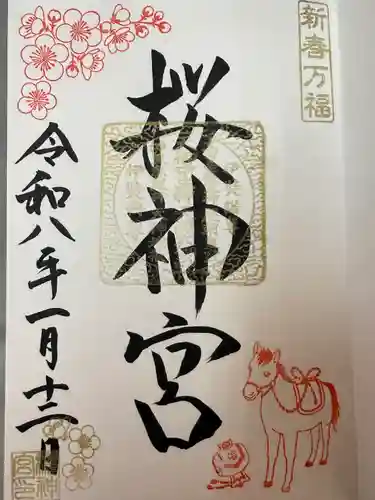 新春万福
桜神宮
令和八年一月十二日